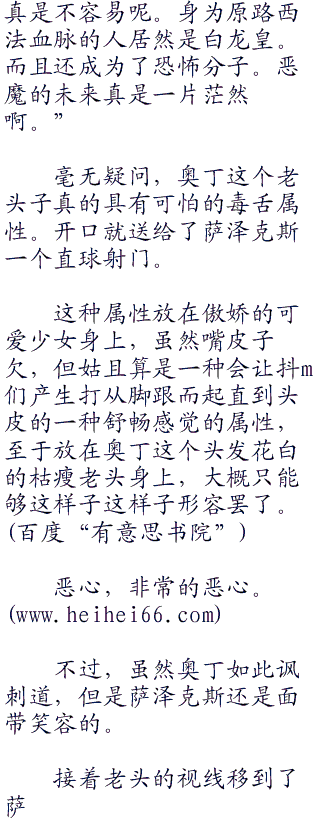 真是不容易呢。身为原路西
法血脉的人居然是白龙皇。
而且还成为了恐怖分子。恶
魔的未来真是一片茫然
啊。”
毫无疑问，奥丁这个老
头子真的具有可怕的毒舌属
性。开口就送给了萨泽克斯
一个直球射门。
这种属性放在傲娇的可
爱少女身上，虽然嘴皮子
欠，但姑且算是一种会让抖m
们产生打从脚跟而起直到头
皮的一种舒畅感觉的属性，
至于放在奥丁这个头发花白
的枯瘦老头身上，大概只能
够这样子这样子形容罢了。
(百度“有意思书院”)
恶心，非常的恶心。
(www.heihei66.com)
不过，虽然奥丁如此讽
刺道，但是萨泽克斯还是面
带笑容的。
接着老头的视线移到了
萨